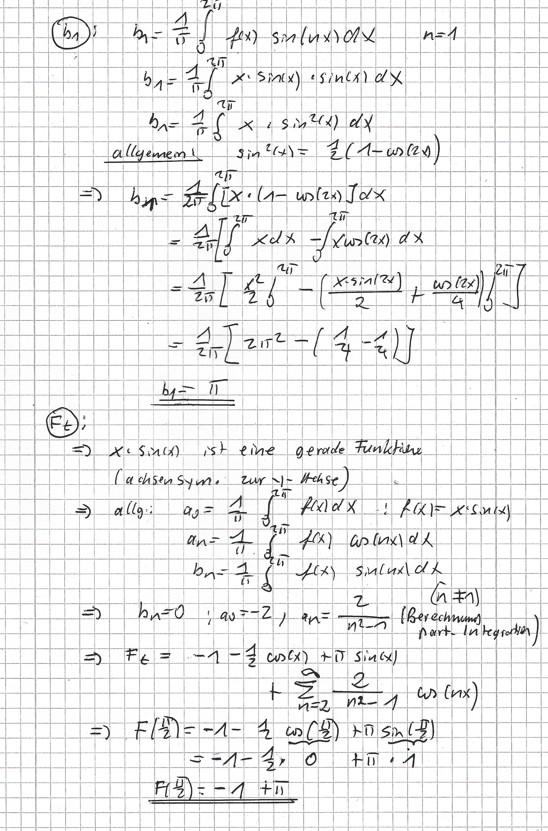 b₁: b₁ = 1/π ∫₀^2π f(x) sin(nx) dx n=1
b₁ = 1/π ∫₀^2π x · sin(x) · sin(x) dx
b₁ = 1/π ∫₀^2π x · sin²(x) dx
allgemein: sin²(x) = 1/2 (1 - cos(2x))
=> b₁ = 1/2π ∫₀^2π [x · (1 - cos(2x)] dx
= 1/2π [∫₀^2π x dx - ∫₀^2π x cos(2x) dx
= 1/2π [x²/2 |₀^2π - (x·sin(2x)/2 + cos(2x)/4) |₀^2π]
= 1/2π [2π² - (1/4 - 1/4)]
b₁ = π
Ft:
=> x · sin(x) ist eine gerade Funktion
(achsensym. zur y-Achse)
=> allg: a₀ = 1/π ∫₀^2π f(x) dx ; f(x) = x·sin(x)
an = 1/π ∫₀^2π f(x) cos(nx) dx
bn = 1/π ∫₀^2π f(x) sin(nx) dx
=> bn = 0 ; a₀ = -2 , an = 2/(n²-1) (n ≠ 1) (Berechnung part. Integration)
=> Ft = -1 - 1/2 cos(x) + π sin(x)
+ ∑_{n=2}^∞ 2/(n²-1) cos(nx)
=> F(π/2) = -1 - 1/2 cos(π/2) + π sin(π/2)
= -1 - 1/2 · 0 + π · 1
F(π/2) = -1 + π